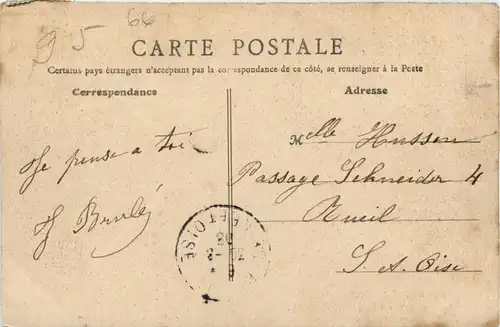 95
66
CARTE POSTALE
Certains pays étrangers n'acceptant pas la correspondance de ce côté, se renseigner à la Poste
Correspondance
Adresse
Je pense a toi
J Brulé
Melle Husson
Passage Schneider 4
Rueil
S. &. Oise
ET OISE